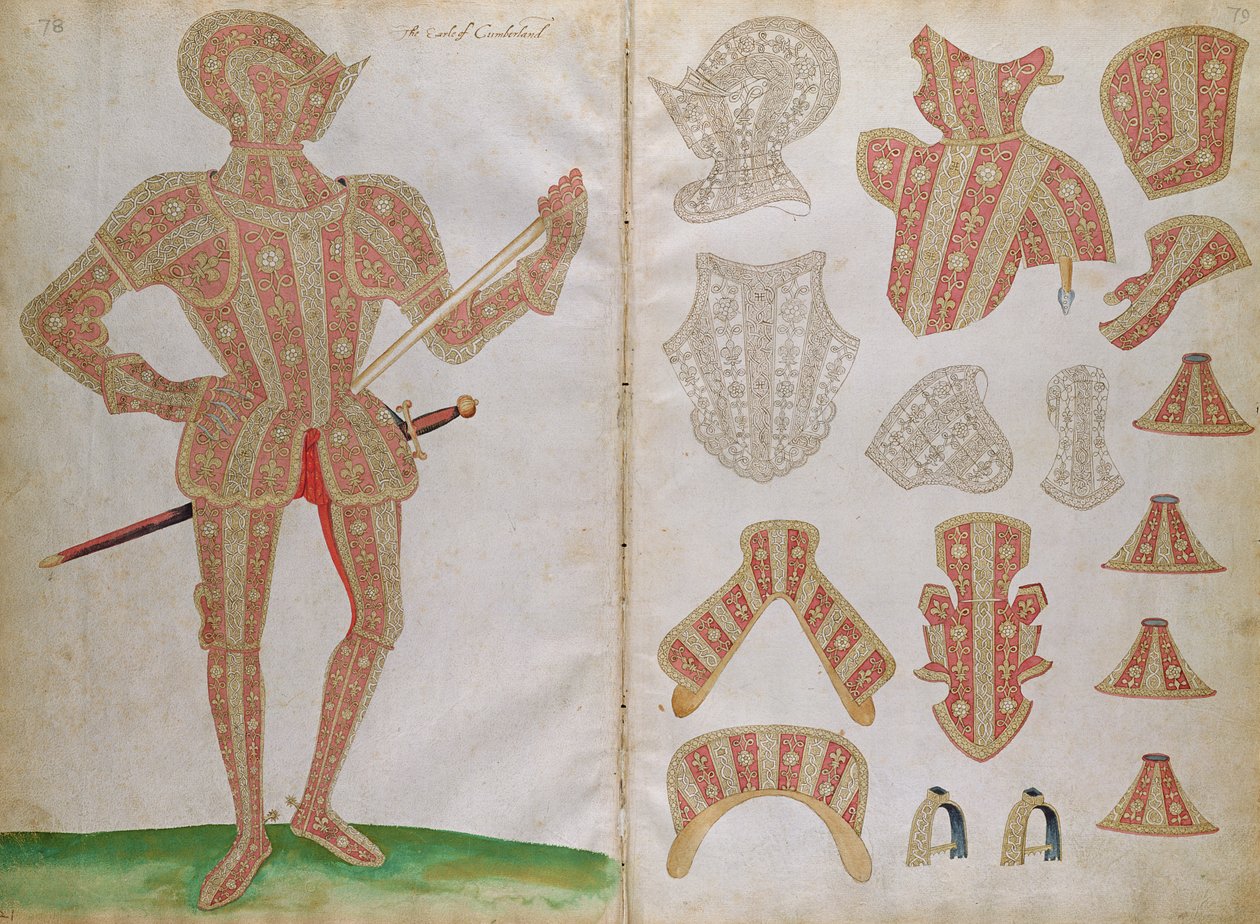 78
The Earle of Cumberland
79
21